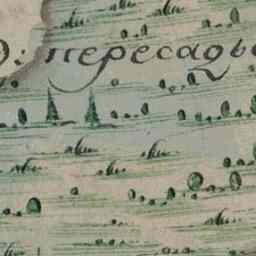 : пересадъ